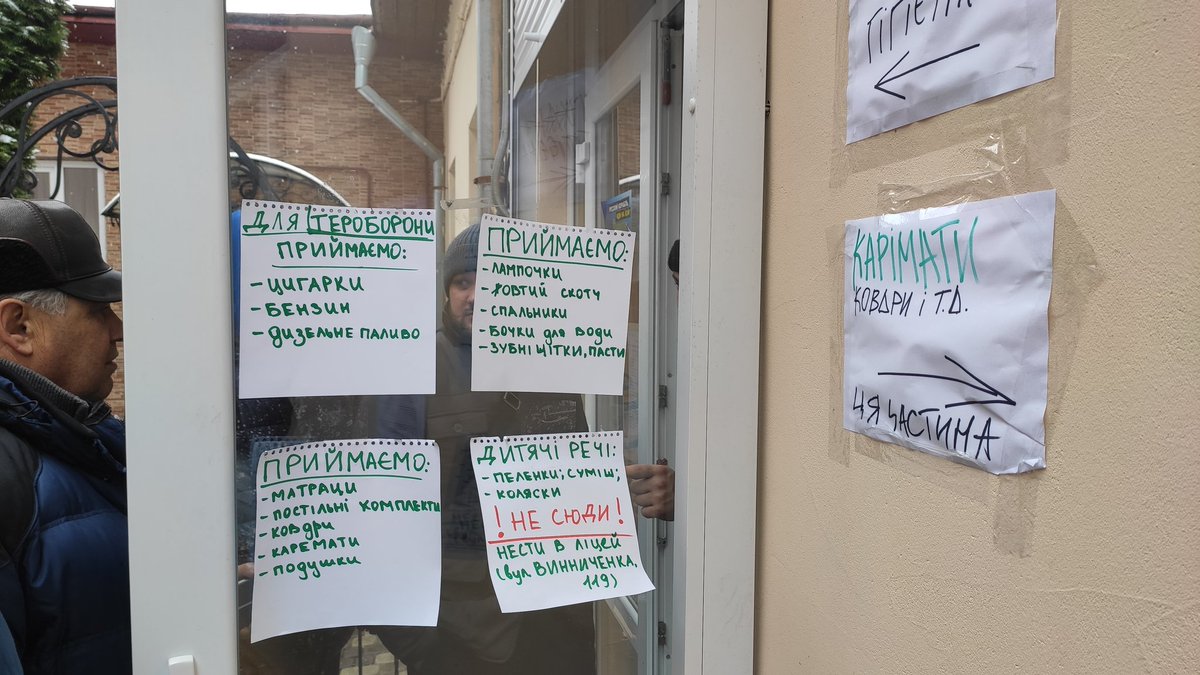 ДЛЯ ТЕРОБОРОНИ
ПРИЙМАЄМО:
- ЦИГАРКИ
- БЕНЗИН
- ДИЗЕЛЬНЕ ПАЛИВО
ПРИЙМАЄМО:
- ЛАМПОЧКИ
- ЖОВТИЙ СКОТЧ
- СПАЛЬНИКИ
- БОЧКИ ДЛЯ ВОДИ
- ЗУБНІ ЩІТКИ, ПАСТИ
ПРИЙМАЄМО:
- МАТРАЦИ
- ПОСТІЛЬНІ КОМПЛЕКТИ
- КОВДРИ
- КАРЕМАТИ
- ПОДУШКИ
ДИТЯЧІ РЕЧІ:
- ПЕЛЕНКИ; СУМІШ;
- КОЛЯСКИ
! НЕ СЮДИ !
НЕСТИ В ЛІЦЕЙ
(вул ВИННИЧЕНКА,
119)
ГІГІЄНА
КАРІМАТИ
КОВДРИ І Т.Д.
ЦЯ ЧАСТИНА